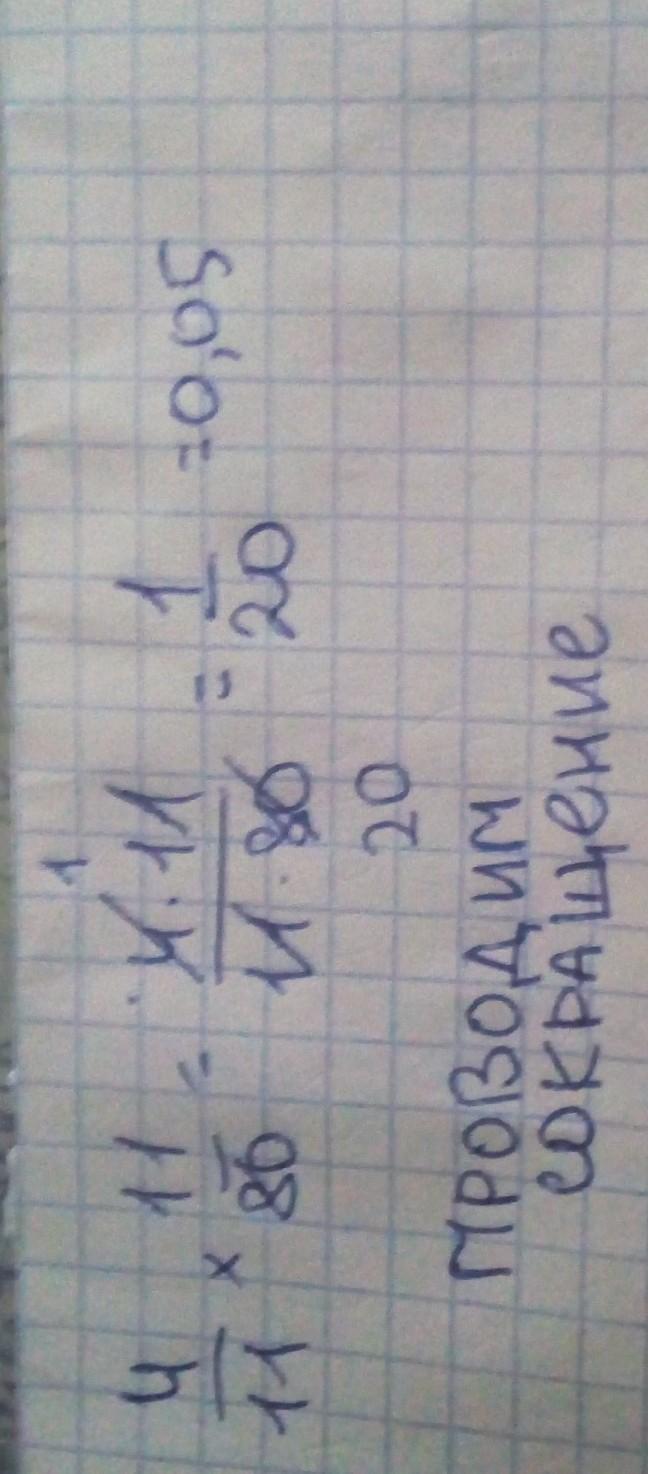 1
4/11 × 11/80 = 4·11/11·80 = 1/20 = 0,05
20
ПРОВОДИМ
СОКРАЩЕНИЕ